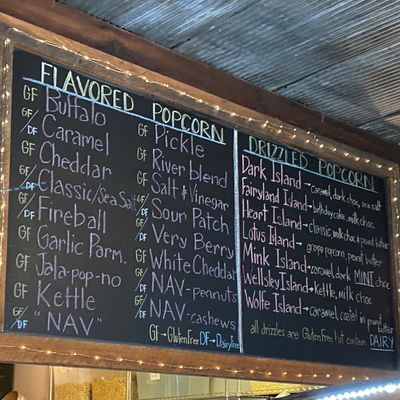 FLAVORED POPCORN
GF Buffalo
GF/DF Caramel
GF Cheddar
GF/DF Classic/Sea Salt
GF/DF Fireball
GF Garlic Parm.
GF Jala-pop-no
GF Kettle
GF/DF "NAV"
GF Pickle
GF River blend
GF Salt & Vinegar
GF/DF Sour Patch
GF/DF Very Berry
GF White Cheddar
GF/DF NAV-peanuts
GF/DF NAV-cashews
GF→GlutenFree DF→DairyFree
DRIZZLED POPCORN
Dark Island→caramel, dark choc
Fairyland Island→birthday cake, milk choc.
Heart Island→classic, milk choc, & p.nut butter
Lotus Island→grape popcorn, peanut butter
Mink Island→caramel, dark MINT choc
Wellsley Island→kettle, milk choc
Wolfe Island→caramel, coated in p.nut butter
all drizzles are GlutenFree but contain DAIRY